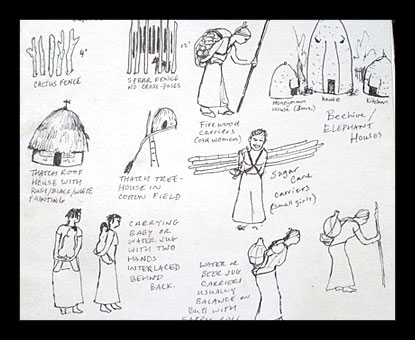 4'
CACTUS FENCE
12'
SPEAR FENCE
NO CROSS-POLES
Firewood
carriers
(old women)
Honeymoon
House
house
Kitchen
Beehive/
ELEPHANT
HOUSES
THATCH ROOF
HOUSE WITH
RUST/BLACK/WHITE
PAINTING
THATCH TREE-
HOUSE IN
COTTON FIELD
Sugar
Cane
carriers
(small girls)
CARRYING
BABY OR
WATER JUG
WITH TWO
HANDS
INTERLACED
BEHIND
BACK.
WATER OR
BEER JUG
CARRIERS
USUALLY
BALANCE ON
BUTT WITH